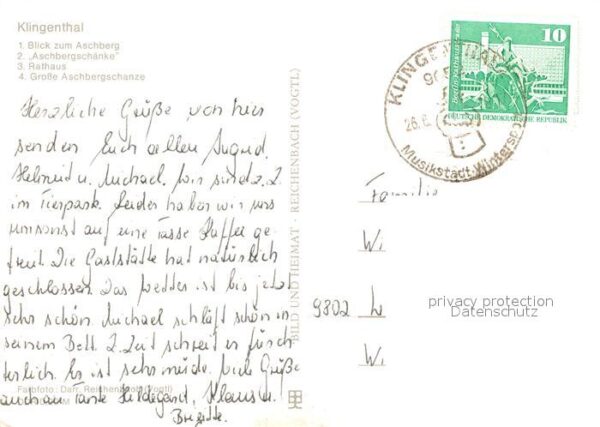 Klingenthal
1. Blick zum Aschberg
2. „Aschbergschänke"
3. Rathaus
4. Große Aschbergschanze
Herzliche Grüße von hier
senden Euch allen Sigrid,
Helmut u. Michael. Wir sind z. Z.
im Tierpark. Leider haben wir uns
umsonst auf eine Tasse Kaffee ge-
freut. Die Gaststätte hat natürlich
geschlossen. Das Wetter ist bis jetzt
sehr schön. Michael schläft schön in
seinem Bett. Z. Zeit schreit er fürch-
terlich. Er ist sehr müde. Viele Grüße
auch an Tante Hildegard, Klaus u.
Brigitte.
Farbfoto: Darr, Reichenbach (Vogtl)
BILD UND HEIMAT · REICHENBACH (VOGTL)
KLINGENTHAL
26.6
Musikstadt, Wintersport
10
Berlin, Rathausstraße
DEUTSCHE DEMOKRATISCHE REPUBLIK
Familie
W.
9802 L
W.
privacy protection
Datenschutz